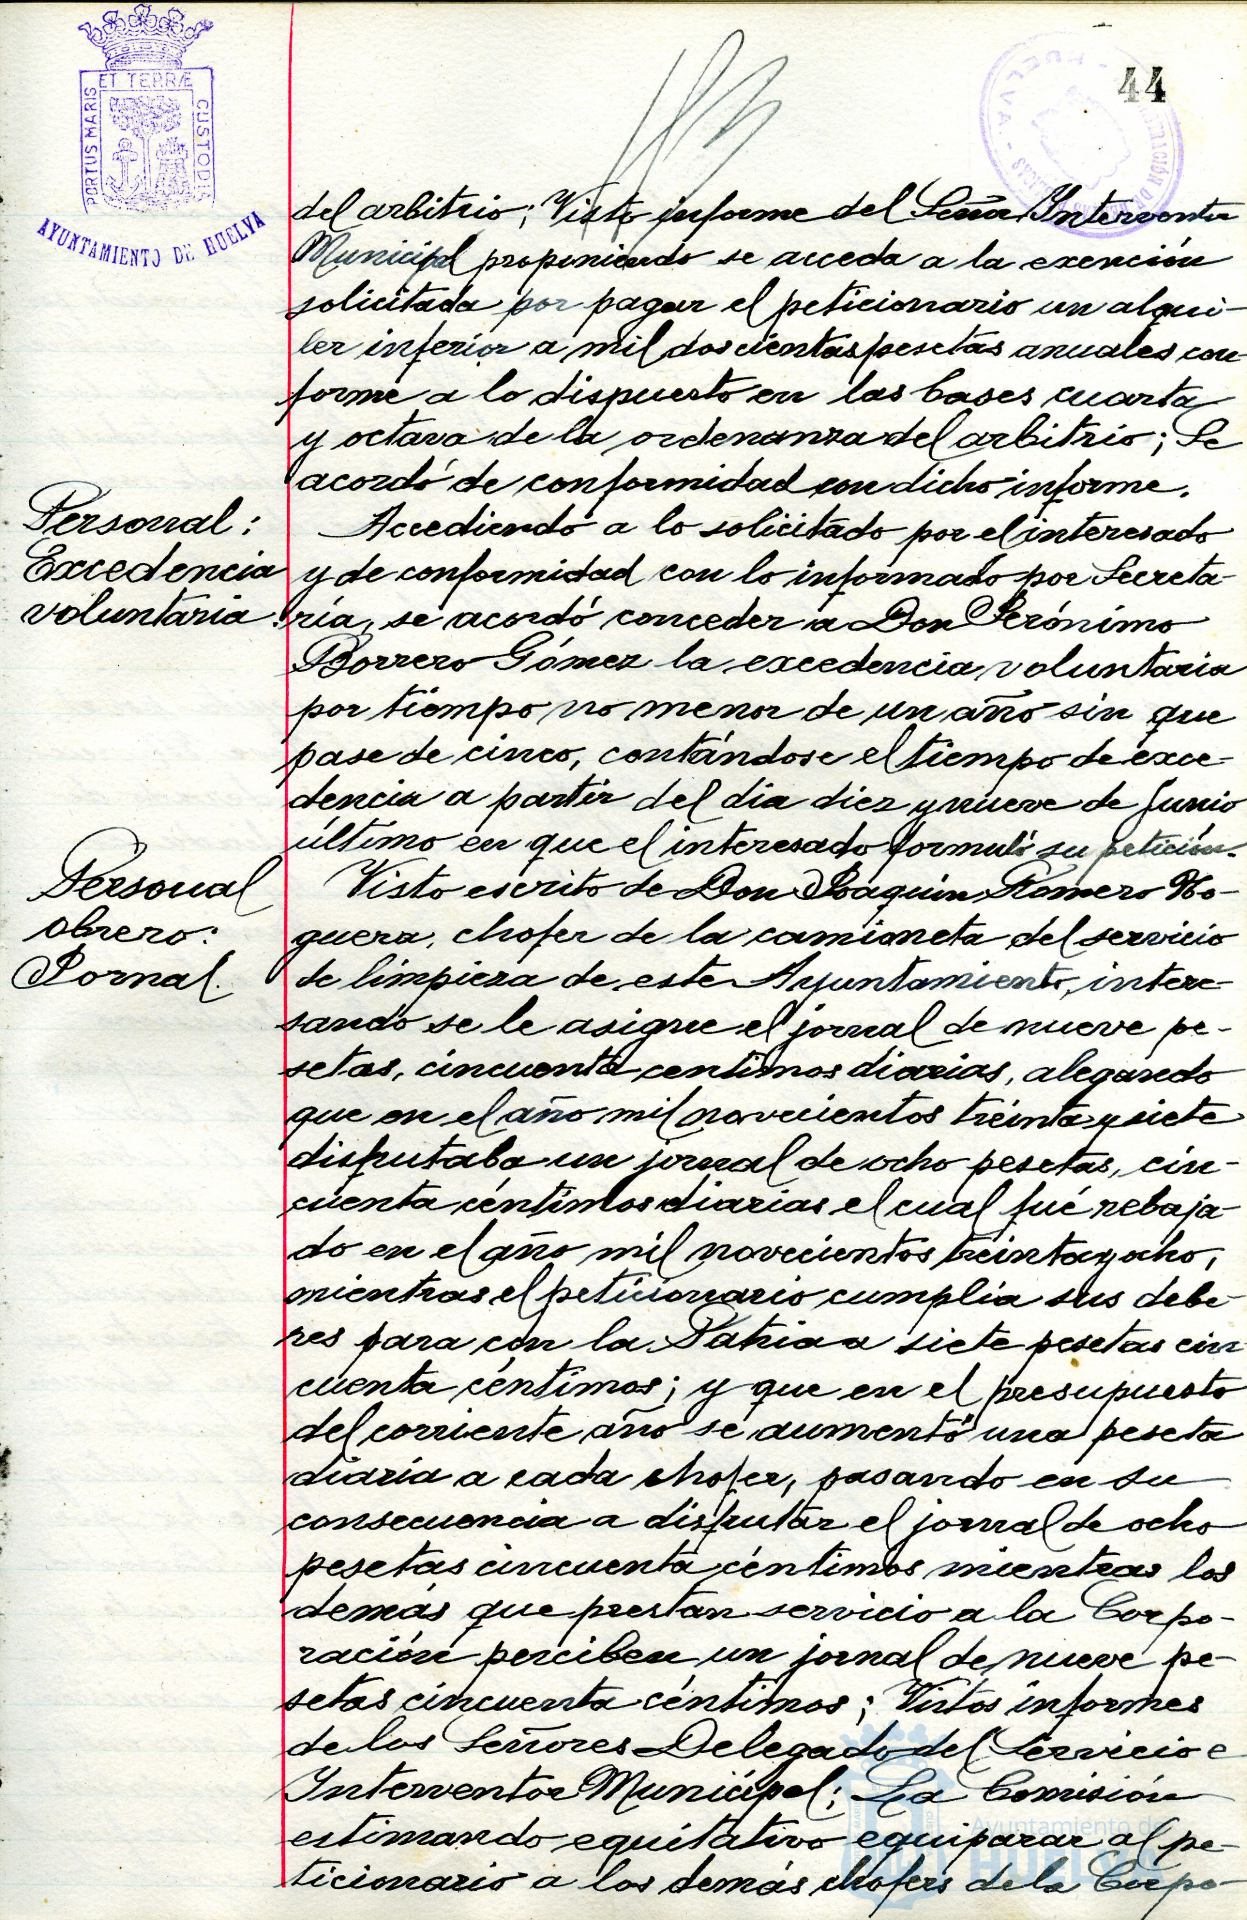 44
PORTUS MARIS ET TERRÆ CUSTODIA
AYUNTAMIENTO DE HUELVA
HUELVA
del arbitrio; Visto informe del Señor Interventor
Municipal proponiendo se acceda a la exención
solicitada por pagar el peticionario un alqui-
ler inferior a mil doscientas pesetas anuales con
forme a lo dispuesto en las bases cuarta
y octava de la ordenanza del arbitrio; Se
acordó de conformidad con dicho informe.
Personal:
Excedencia
voluntaria.
Accediendo a lo solicitado por el interesado
y de conformidad con lo informado por Secreta-
ría, se acordó conceder a Don Jerónimo
Borrero Gómez la excedencia voluntaria
por tiempo no menor de un año sin que
pase de cinco, contándose el tiempo de exce-
dencia a partir del día diez y nueve de Junio
último en que el interesado formuló su petición.
Personal
obrero:
Jornal.
Visto escrito de Don Joaquín Romero No-
guera, chofer de la camioneta del servicio
de limpieza de este Ayuntamiento, intere-
sando se le asigne el jornal de nueve pe-
setas, cincuenta centimos diarias, alegando
que en el año mil novecientos treinta y siete
disfrutaba un jornal de ocho pesetas, cin-
cuenta céntimos diarias el cual fué rebaja-
do en el año mil novecientos treinta y ocho,
mientras el peticionario cumplia sus debe-
res para con la Patria a siete pesetas cin
cuenta céntimos; y que en el presupuesto
del corriente año se aumentó una peseta
diaria a cada chofer, pasando en su
consecuencia a disfrutar el jornal de ocho
pesetas cincuenta céntimos mientras los
demás que prestan servicio a la Corpo-
ración perciben un jornal de nueve pe-
setas cincuenta céntimos; Vistos informes
de los Señores Delegado del Servicio e
Interventor Municipal; La Comisión
estimando equitativo equiparar al pe-
ticionario a los demás chofers de la Corpo-
Ayuntamiento de
HUELVA